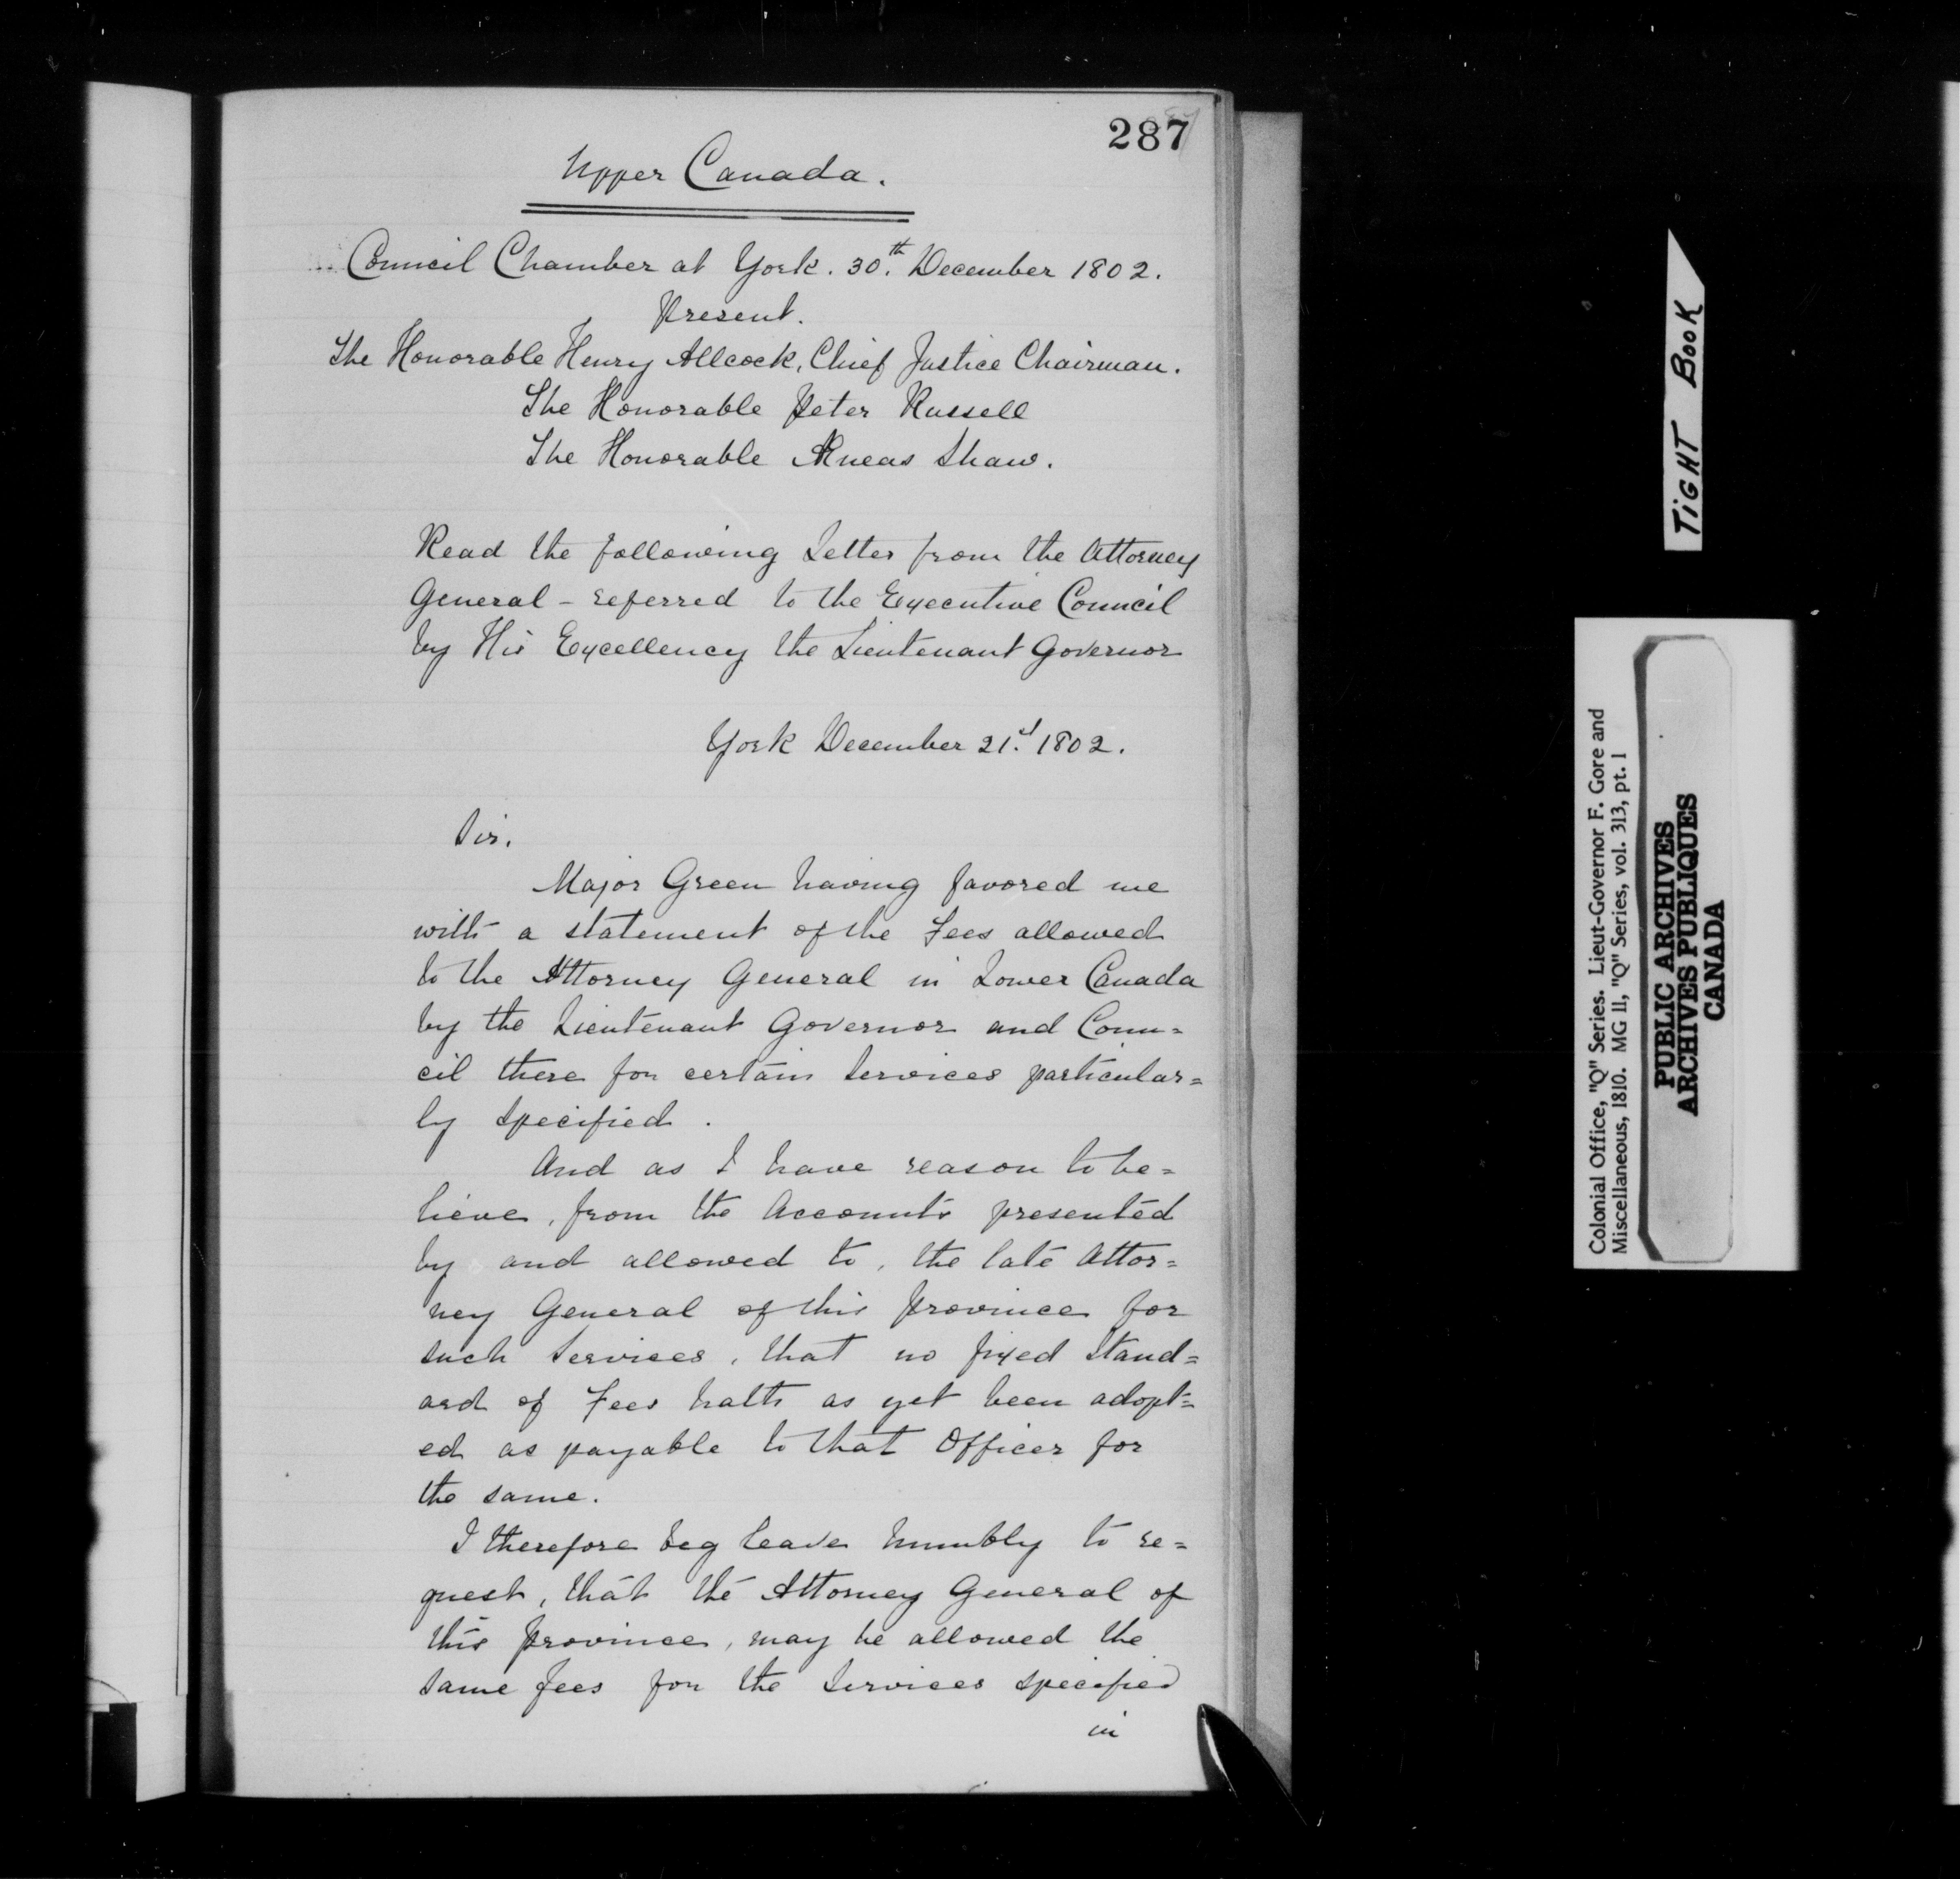 287
Upper Canada.
Council Chamber at York. 30th. December 1802.
Present.
The Honorable Henry Allcock, Chief Justice Chairman.
The Honorable Peter Russell
The Honorable Aeneas Shaw.
Read the following Letter from the Attorney
General - referred to the Executive Council
by His Excellency the Lieutenant Governor
York December 21st. 1802.
Sir,
Major Green having favored me
with a statement of the Fees allowed
to the Attorney General in Lower Canada
by the Lieutenant Governor and Coun=
cil there for certain Services particular=
ly specified.
And as I have reason to be=
lieve, from the Accounts presented
by and allowed to, the late Attor=
ney General of this Province for
such Services, that no fixed Stand=
ard of Fees hath as yet been adopt=
ed as payable to that Officer for
the same.
I therefore beg leave humbly to re=
quest, that the Attorney General of
this Province, may be allowed the
same fees for the Services specified
in
TIGHT BOOK
Colonial Office, "Q" Series. Lieut-Governor F. Gore and
Miscellaneous, 1810. MG 11, "Q" Series, vol. 313, pt. 1
PUBLIC ARCHIVES
ARCHIVES PUBLIQUES
CANADA